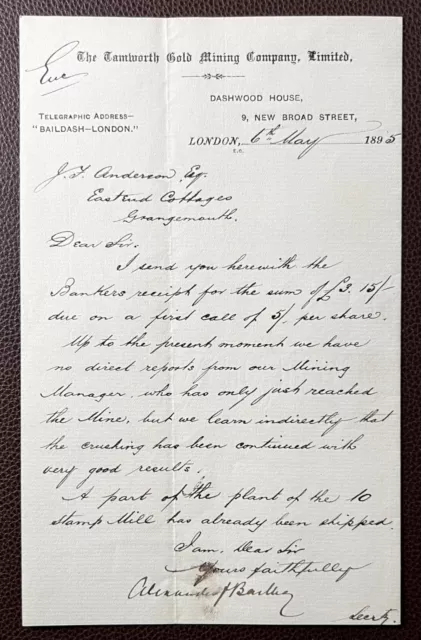 The Tamworth Gold Mining Company, Limited,
Enc
DASHWOOD HOUSE,
TELEGRAPHIC ADDRESS—
9, NEW BROAD STREET,
"BAILDASH—LONDON."
LONDON, 6th May 1895
E.C.
J. T. Anderson Esq.
Eastend Cottages
Grangemouth.
Dear Sir.
I send you herewith the
Bankers receipt for the sum of £3.15/-
due on a first call of 5/. per share.
Up to the present moment we have
no direct reports from our Mining
Manager, who has only just reached
the Mine, but we learn indirectly that
the crushing has been continued with
very good results.
A part of the plant of the 10
stamp Mill has already been shipped.
I am, Dear Sir
Yours faithfully
Alexander J
Secty.